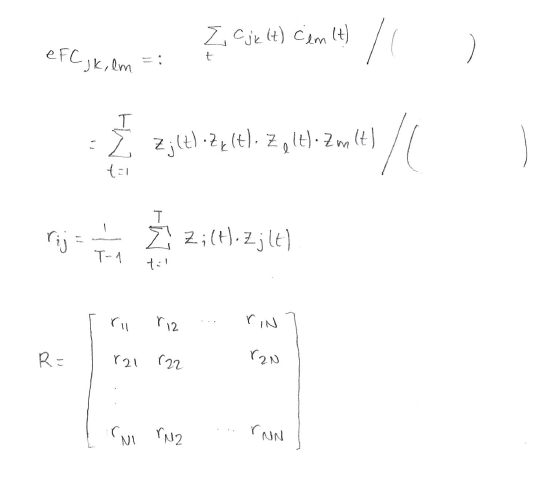 eFC_{jk,lm} =: \sum_{t} C_{jk}(t) C_{lm}(t) / (        )
= \sum_{t=1}^{T} z_j(t) \cdot z_k(t) \cdot z_l(t) \cdot z_m(t) / (        )
r_{ij} = \frac{1}{T-1} \sum_{t=1}^{T} z_i(t) \cdot z_j(t)
R = [ r_{11} r_{12} ... r_{1N}
r_{21} r_{22} r_{2N}
. . .
r_{N1} r_{N2} ... r_{NN} ]